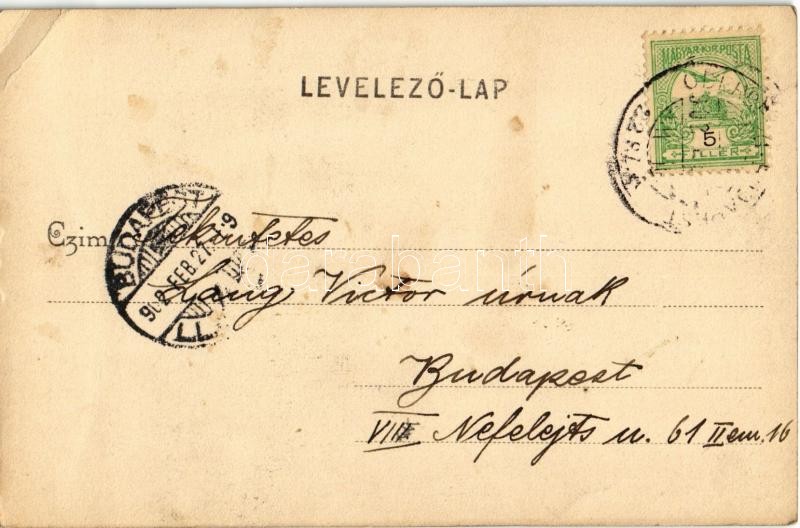 LEVELEZŐ-LAP
MAGYAR KIR. POSTA
5
FILLER
BUDAPEST
902 FEB. 27
Czim
Tekintetes
Lang Victor úrnak
Budapest
VIII Nefelejts u. 61 II em. 16
darabanth